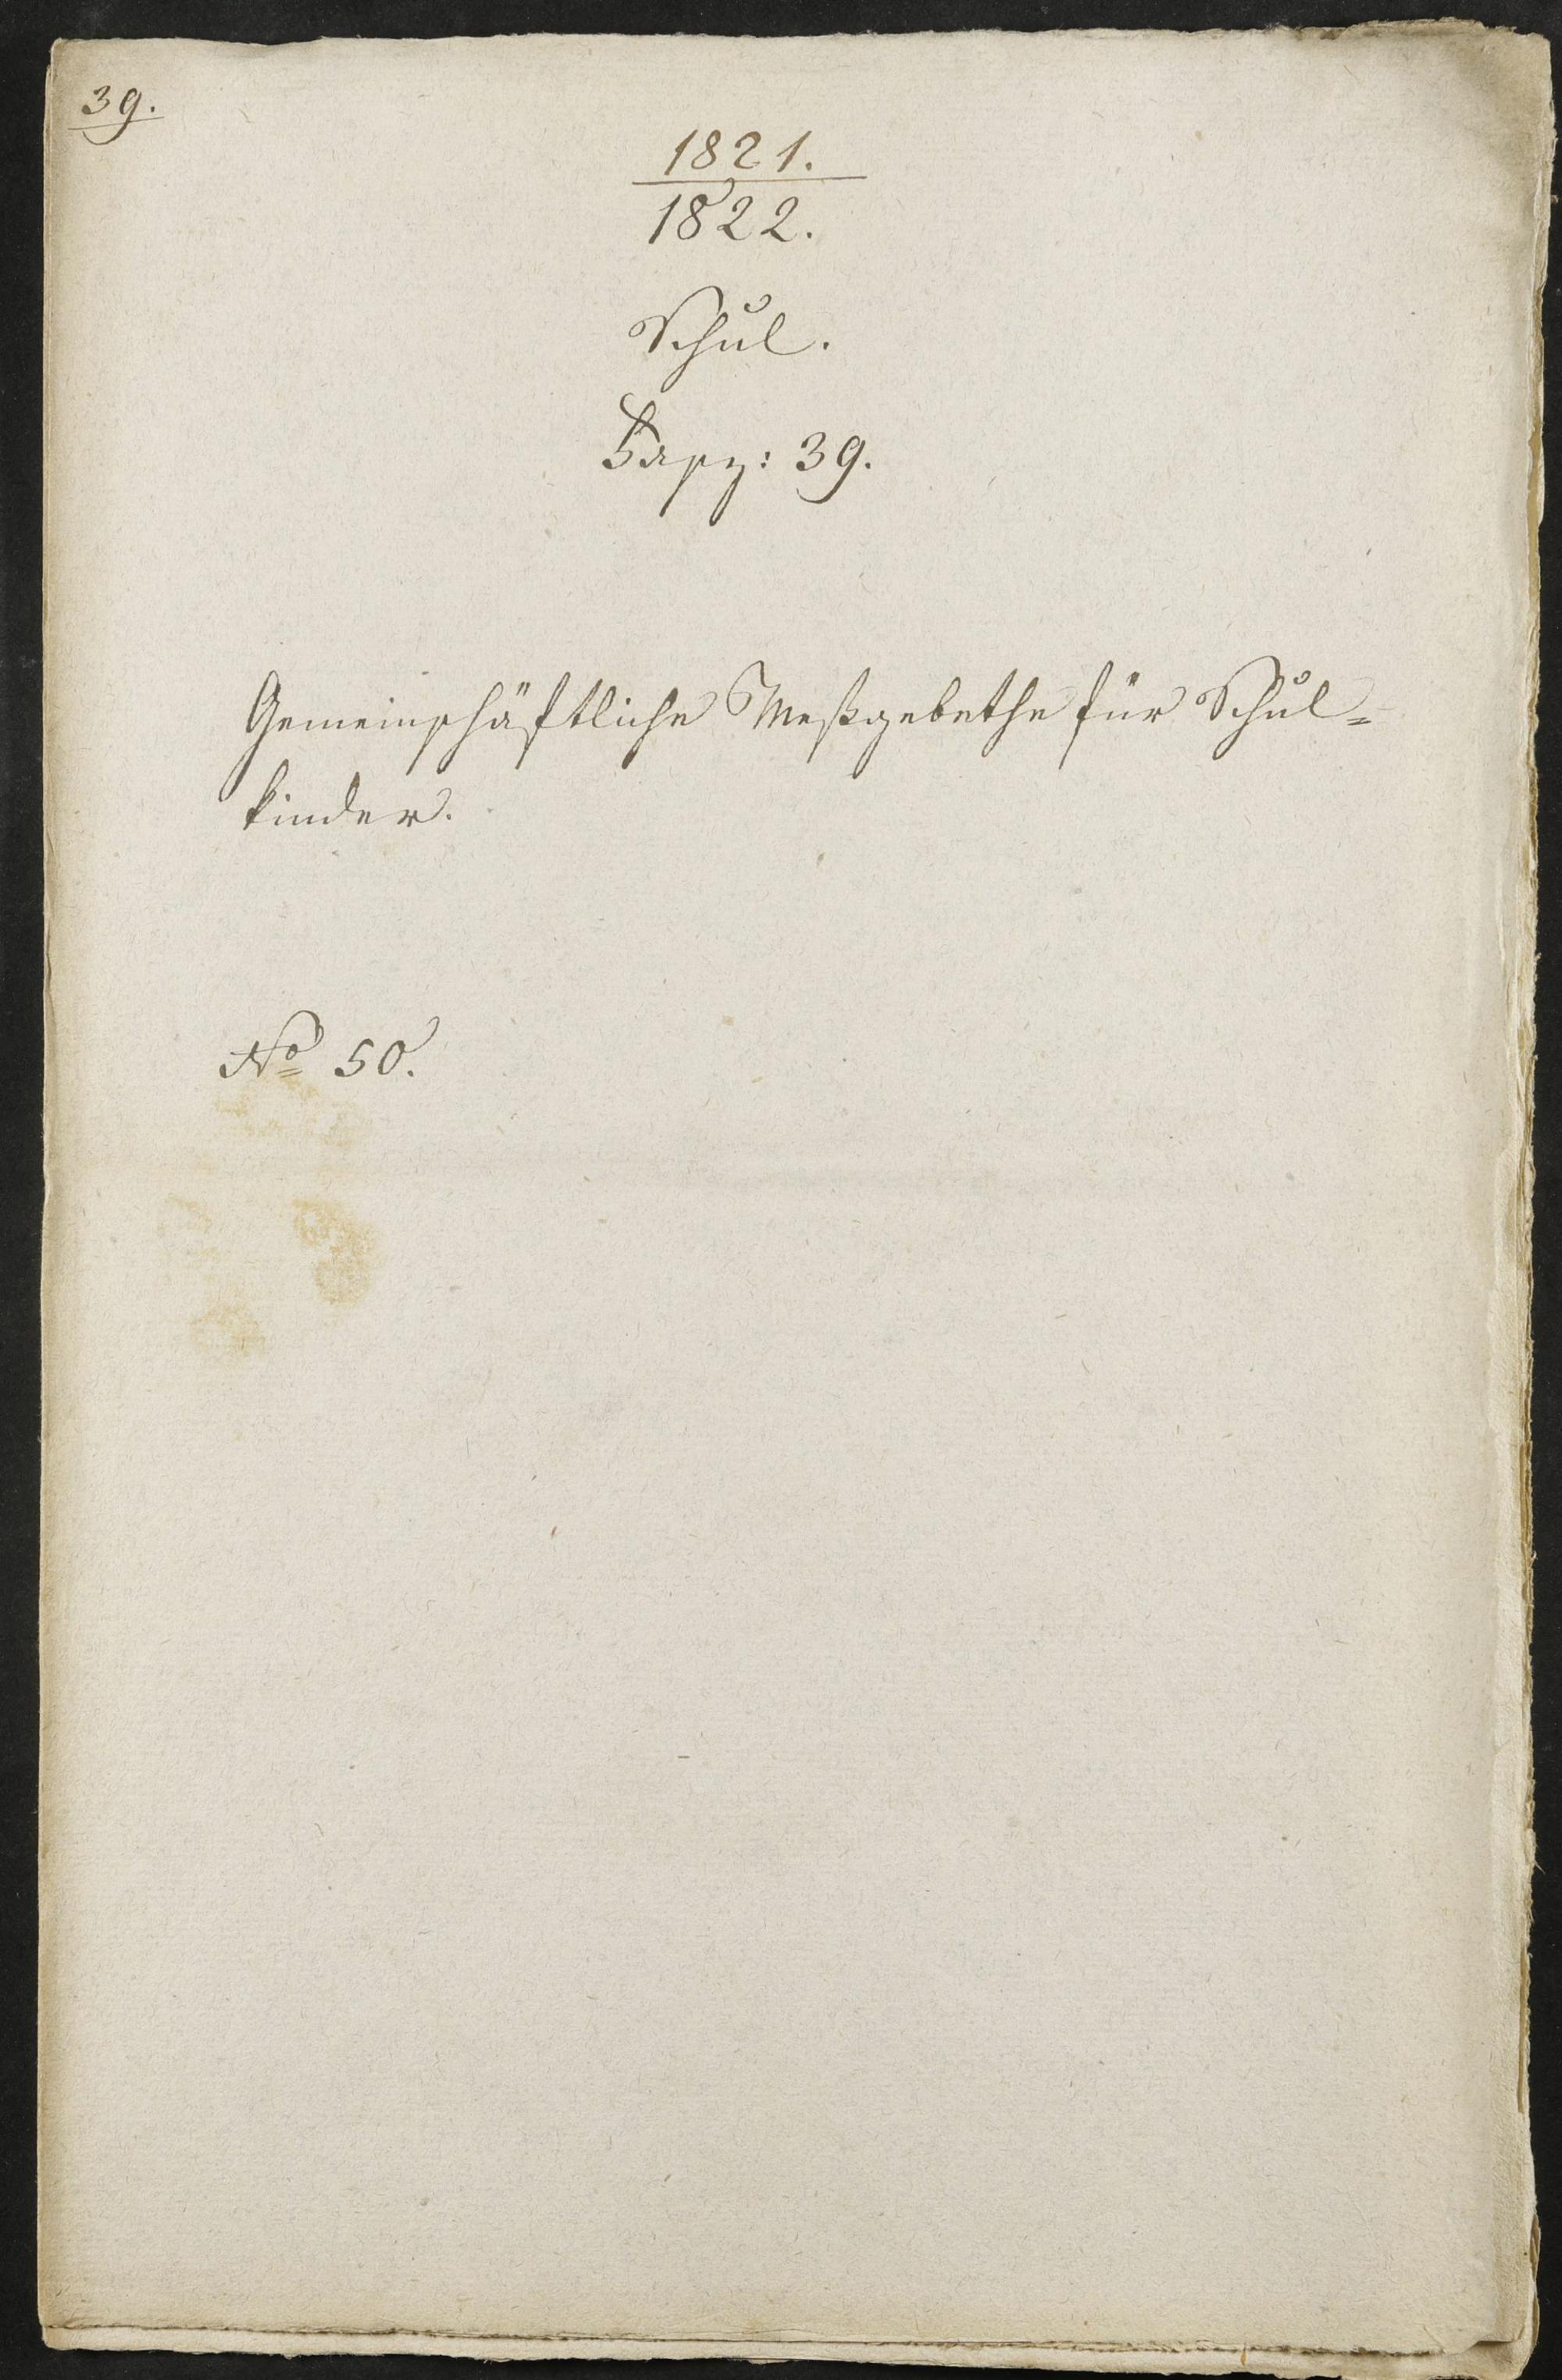 39.
1821.
1822.
Schul.
Fasz: 39.
Gemeinschäftliche Meßgebethe für Schul=
kinder.
No 50.